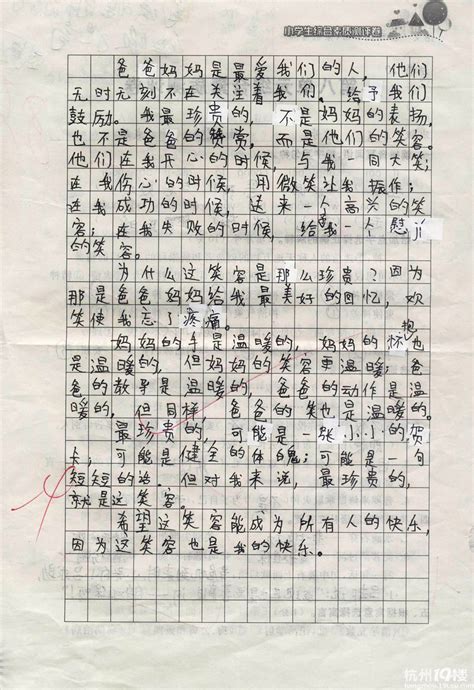 小学生综合素质测评卷
爸爸妈妈是最爱我们的人，他们
无时无刻不在关注着我们。给予我们
鼓励。我最珍贵的，不是妈妈的表扬，
也不是爸爸的赞赏，而是他们的笑容。
他们在我开心的时候，与我一同大笑；
在我伤心的时候，用微笑让我振作；
在我成功的时候，送来一个高兴的笑
容；在我失败的时候，给我一个慰ji
的笑容。
为什么这笑容是那么珍贵？因为
那是爸爸妈妈给我最美好的回忆，欢
笑使我忘了疼痛。
妈妈的手是温暖的，妈妈的怀抱也
是温暖的，但妈妈的笑容更温暖；爸
爸的教导是温暖的，爸爸的动作是温
暖的，但同样，爸爸的笑也是温暖的。
最珍贵的，可能是一张小小的贺
卡，可能是健全的体魄；可能是一句
短短的话。但对我来说，最珍贵的，
就是这笑容。
希望这笑容能成为所有人的快乐，
因为这笑容也是我的快乐。
杭州19楼